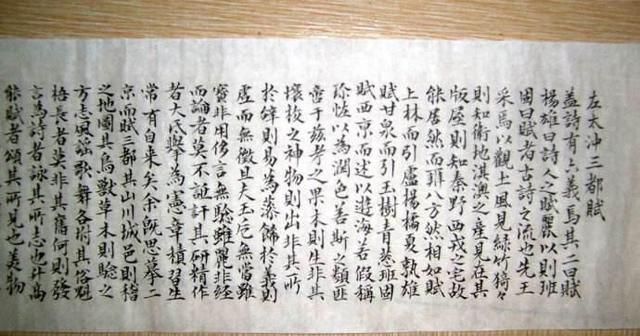 左太沖三都賦
蓋詩有六義焉其二曰賦
楊雄曰詩人之賦麗以則班
固曰賦者古詩之流也先王
采焉以觀土風見綠竹猗々
則知衛地淇澳之產見在其
版屋則知秦野西戎之宅故
能居然而辨八方然相如賦
上林而引盧楊橘夏孰雄
賦甘泉而引玉樹青葱班固
賦西京而述以遊海若假稱
珎恠以為潤色善斯之類匪
啻于茲考之果木則生非其
壤校之神物則出非其所
於辞則易為藻飾於義則
虛而無徵且夫玉卮無當雖
寶非用侈言無驗雖麗非經
而論者莫不詆訐其研精作
者大氐舉為憲章積習生
常有自来矣余既思摹二
京而賦三都其山川城邑則稽
之地圖其鳥獸草木則驗之
方志風謠歌舞各附其俗魁
梧長者莫非其舊何則發
言為詩者詠其所志也升高
能賦者頌其所見也美物